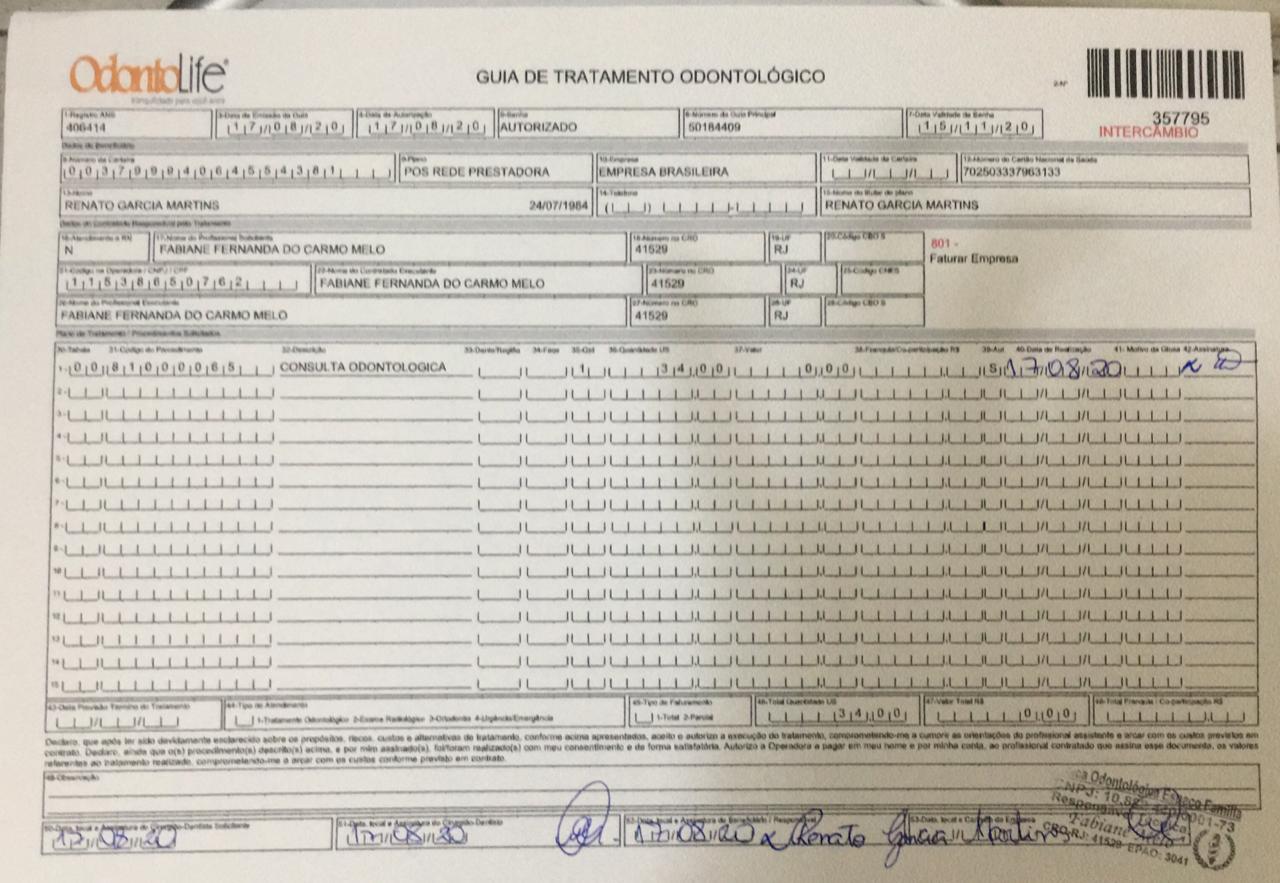 OdontoLife
tranquilidade para você sorrir
GUIA DE TRATAMENTO ODONTOLÓGICO
2-Nº
357795
INTERCÂMBIO
1-Registro ANS
406414
3-Data de Emissão da Guia
17/08/20
4-Data de Autorização
17/08/20
5-Senha
AUTORIZADO
6-Número da Guia Principal
50184409
7-Data Validade da Senha
15/11/20
Dados do Beneficiário
8-Número da Carteira
9-Plano
POS REDE PRESTADORA
10-Empresa
EMPRESA BRASILEIRA
11-Data Validade da Carteira
12-Número do Cartão Nacional de Saúde
702503337963133
13-Nome
RENATO GARCIA MARTINS 24/07/1984
14-Telefone
15-Nome do titular do plano
RENATO GARCIA MARTINS
Dados do Contratado Responsável pelo Tratamento
16-Atendimento a RN
N
17-Nome do Profissional Solicitante
FABIANE FERNANDA DO CARMO MELO
18-Número no CRO
41529
19-UF
RJ
20-Código CBO S
801 -
Faturar Empresa
21-Código na Operadora / CNPJ / CPF
11538650762
22-Nome do Contratado Executante
FABIANE FERNANDA DO CARMO MELO
23-Número no CRO
41529
24-UF
RJ
25-Código CNES
26-Nome do Profissional Executante
FABIANE FERNANDA DO CARMO MELO
27-Número no CRO
41529
28-UF
RJ
29-Código CBO S
Plano de Tratamento / Procedimentos Solicitados
30-Tabela 31-Código do Procedimento 32-Descrição 33-Dente/Região 34-Face 35-Qtd 36-Quantidade US 37-Valor 38-Franquia/Co-participação R$ 39-Aut 40-Data de Realização 41- Motivo da Glosa 42-Assinatura
1- 00 81000065 CONSULTA ODONTOLOGICA 1 34,00 0,00 S 17/08/20
2-
3-
4-
5-
6-
7-
8-
9-
10
11
12
13
14
15
43-Data Previsão Término do Tratamento
44-Tipo de Atendimento
1-Tratamento Odontológico 2-Exame Radiológico 3-Ortodontia 4-Urgência/Emergência
45-Tipo de Faturamento
1-Total 2-Parcial
46-Total Quantidade US
34,00
47-Valor Total R$
0,00
48-Total Franquia / Co-participação R$
Declaro, que após ter sido devidamente esclarecido sobre os propósitos, riscos, custos e alternativas de tratamento, conforme acima apresentados, aceito e autorizo a execução do tratamento, comprometendo-me a cumprir as orientações do profissional assistente e arcar com os custos previstos em
contrato. Declaro, ainda que o(s) procedimento(s) descrito(s) acima, e por mim assinado(s), foi/foram realizado(s) com meu consentimento e de forma satisfatória. Autorizo a Operadora a pagar em meu nome e por minha conta, ao profissional contratado que assina esse documento, os valores
referentes ao tratamento realizado, comprometendo-me a arcar com os custos conforme previsto em contrato.
49-Observação
50-Data, local e Assinatura do Cirurgião-Dentista Solicitante
17/08/20
51-Data, local e Assinatura do Cirurgião-Dentista
17/08/20
52-Data, local e Assinatura do Beneficiário / Responsável
17/08/20 x Renato Garcia Martins
53-Data, local e Carimbo da Empresa
Odontológica Espaço Família
CNPJ:
Responsável
Fabiane
CRO-RJ: 41529 EPAO: 3041